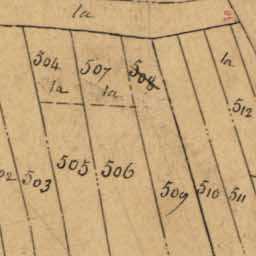 1a
504 507 508 1a
1a 1a
512
505 506
503 509 510 511